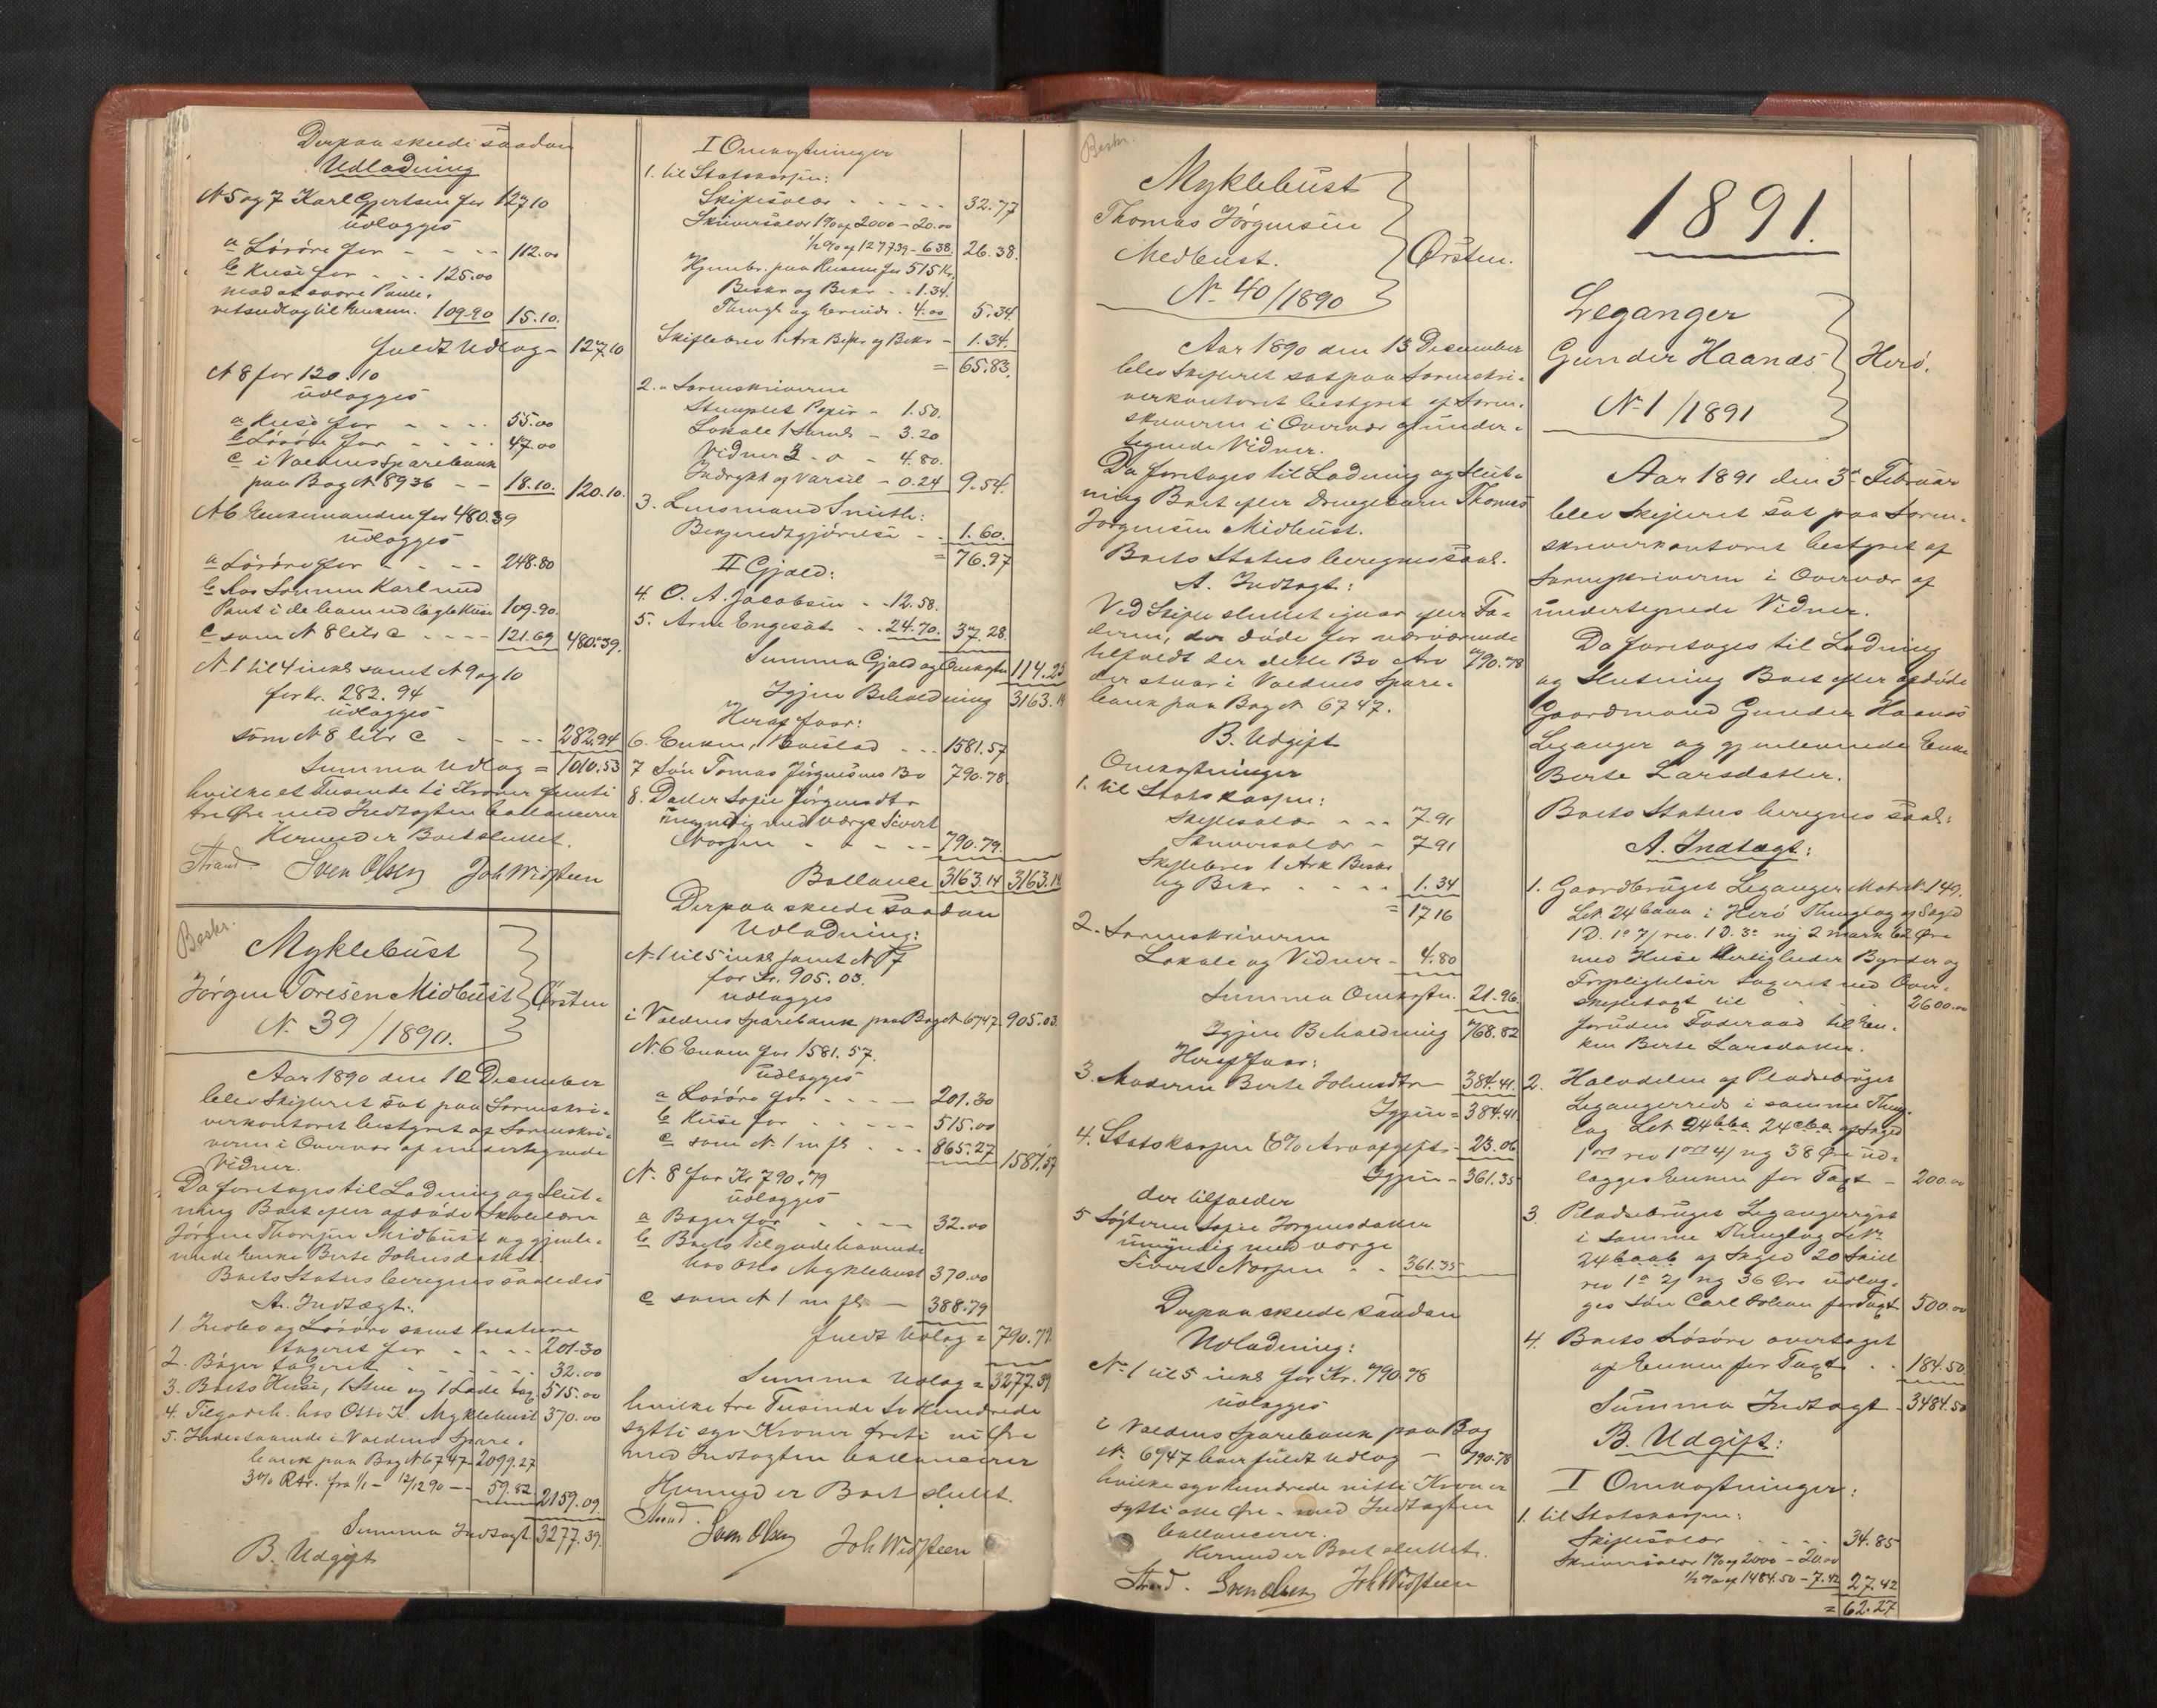 Derpaa skeede saadan
Udlodning
N 5 og 7 Karl Gjertsen for 127 10
udlægges
a Løsøre for - - - 112.00
b Huse for - - 125.00
mod at svare Pante-
retsudlæg til Enkem. 109.90 15.10.
fuldt Udlæg - 127.10
N 8 for 120.10
udlægges
a Huse for - - - 55.00
b Løsøre for - - - 47.00
c i Voldens Sparebank
paa Bog N 8936 - - 18.10. 120.10.
N 6 Enkemanden for 480.39
udlægges
a Løsøre for - - - 248.80
b hos Sønnen Karl med
Pant i de ham udlagte Huse 109.90.
c som N 8 litr c - - - 121.69 480.39.
N. 1 til 4 inkl samt N 9 og 10
for kr. 282.94
udlægges
som N 8 litr c - - - 282.94
Summa Udlæg = 1010.53
hvilke et Tusende ti Kroner femti
tre Øre med Indtægten ballancerer
Hermed er Boet sluttet.
Strand Sven Olsen Joh Widsteen
Beskr.
Myklebust
Jørgen Toresen Midbust Ørsten
N. 39/1890.
Aar 1890 den 12 December
blev Skifteret sat paa Sorenskri-
verkontoret bestyret af Sorenskri-
veren i Overvær af undertegnede
Vidner.
Da foretages til Lodning og Slut-
ning Boet efter afdøde Skolelærer
Jørgen Thoresen Midbust og gjenle-
vende Enke Berte Johnsdatter.
Boets Status beregnes saaledes
A. Indtægt:
1. Indbo og Løsøre samt Kreature
tageret for - - - 201.30
2. Bøger tageret - - - 32.00
3. Boets Huse, 1 Stue og 1 Lade tag 515.00
4. Tilgodeh. hos Otto K. Myklebust 370.00
5. Indestaaende i Voldens Spare-
bank paa Bog N 6747 - 2099.27
3% Rtr. fra 1/1 - 12/12 90 - 59.82 2159.09.
Summa Indtægt 3277.39.
B. Udgift
I Omkostninger
1. til Statskassen:
Skiftesalær - - - 32.77
Skriversalær 1% af 2000 - 20.00
1/2 % af 1277.39 - 6.38. 26.38.
Hjembr. paa Husene for 515 Kr.
Beskr og Bekr - - 1.34.
Thingl. og Erindr. 4.00 5.34.
Skiftebrev 1 Ark Beskr og Bekr - 1.34.
= 65.83.
2. Sorenskriveren
Stemplet Papir - 1.50.
Lokale 1 Samls - 3.20
Vidner 3 - o - 4.80.
Indrykk og Varsel - 0.24 9.54.
3. Lensmand Smith:
Bekjendtgjørelse - 1.60.
= 76.97
II Gjæld:
4. O. A. Jacobsen - 12.58.
5. Arne Engesæt - 24.70. 37.28.
Summa Gjæld og Omkostn. 114.25
Igjen Beholdning 3163.14
Heraf faar:
6. Enken, Boeslod - - 1581.57
7 Søn Tomas Jørgensens Bo 790.78.
8. Datter Sofie Jørgensdtr
umyndig med værge Sivert
Aasen - - - 790.79.
Ballance 3163.14 3163.14
Derpaa skeede saadan
Udlodning:
N. 1 til 5 inkl samt N 7
for Kr. 905.03.
udlægges
i Voldens Sparebank paa Bog N 6747 905.03.
N. 6 Enken for 1581.57.
udlægges
a Løsøre for - - - 201.30
b Huse for - - - 515.00
c som N. 1 m fl - - 865.27 1581.57
N. 8 for Kr 790.79
udlægges
a Bøger for - - - 32.00
b Boets Tilgodehavende
hos Otto Myklebust 370.00
c som N 1 m fl - 388.79
fuldt Udlæg = 790.79.
Summa Udlæg = 3277.39.
hvilke tre Tusinde to Hundrede
sytti syv Kroner treti ni Øre
med Indtægten ballancerer
Hermed er Boet sluttet.
Strand. Sven Olsen Joh Widsteen
Beskr.
Myklebust
Thomas Jörgensen
Medbust. Ørsten.
N. 40/1890
Aar 1890 den 13 December
blev Skifteret sat paa Sorenskri-
verkontoret bestyret af Soren-
skriveren i Overvær af under-
tegnede Vidner.
Da foretages til Lodning og Slut-
ning Boet efter Drengebarn Thomas
Jørgensen Midbust.
Boets Status beregnes saal.
A. Indtægt:
Ved Skifte sluttet igaar efter Fa-
deren, der døde før nærværende
tilfaldt der dette Bo Arv 790.78
der staar i Voldens Spare-
bank paa Bog N 6747.
B. Udgift
Omkostninger
1. til Statskassen:
Skiftesalær - - - 7.91
Skriversalær - 7.91
Skiftebrev 1 Ark Beskr
og Bekr - - - 1.34
= 17.16
2. Sorenskriveren
Lokale og Vidner - 4.80
Summa Omkostn. 21.96
Igjen Beholdning 768.82
Heraf faar:
3. Moderen Berte Johnsdtr - 384.41.
Igjen = 384.41
4. Statskassen 6% Arveafgift - 23.06
Igjen - 361.35
der tilfalder
5 Søsteren Sofie Jørgensdatter
umyndig med værge
Sivert Aasen - - 361.35
Derpaa skeede saadan
Udlodning:
No 1 til 5 inkl for Kr. 790.78
udlægges
i Voldens Sparebank paa Bog
N. 6747 hver fuldt Udlæg - 790.78
hvilke syv hundrede nitti Kroner
sytti otte Øre - med Indtægten
ballancerer.
Hermed er Boet sluttet.
Strand. Sven Olsen Joh Widsteen
1891.
Leganger
Gunder Haanæs Herø.
N. 1/1891
Aar 1891 den 3d Februar
blev Skifteret sat paa Soren-
skriverkontoret bestyret af
Sorenskriveren i Overvær af
undertegnede Vidner.
Da foretages til Lodning
og Slutning Boet efter afdøde
Gaardmand Gunder Haanæs
Leganger og gjenlevende Enke
Berte Larsdatter.
Boets Status beregnes saal:
A. Indtægt:
1. Gaardbruget Leganger Matr N. 149.
L.N. 24 baaa i Herø Thinglag af Skyld
1 D. 1o 7/ rev. 1 D. 3o ny 2 mark 62 Øre
med Huse Herligheder Byrder og
Forpligtelser tageret ved Over-
skjøtstagt til - - 2600.00
foruden Føderaad til En-
ken Berte Larsdatter.
2. Halvdelen af Pladsebruget
Legangerreds i samme Thing-
lag LN 24 bba 24 cba af Skyld
1 ort rev 1 ort 4/ ny 38 Øre ud-
lægges Enken for Taxt - 200.00
3. Pladsebruget Legangerryst
i samme Thinglag LNr
24 baab af Skyld 20 Skill
rev 1o 2/ ny 36 Øre udlæg-
ges Søn Carl Johan for Taxt 500.00
4. Boets Løsøre overtaget
af Enken for Taxt - - 184.50
Summa Indtægt - 3484.50
B. Udgift:
I Omkostninger:
1. til Statskassen:
Skiftesalær - - - 34.85
Skriversalær 1% af 2000 - 20.00
1/2 % af 1484.50 - 7.42 27.42
= 62.27